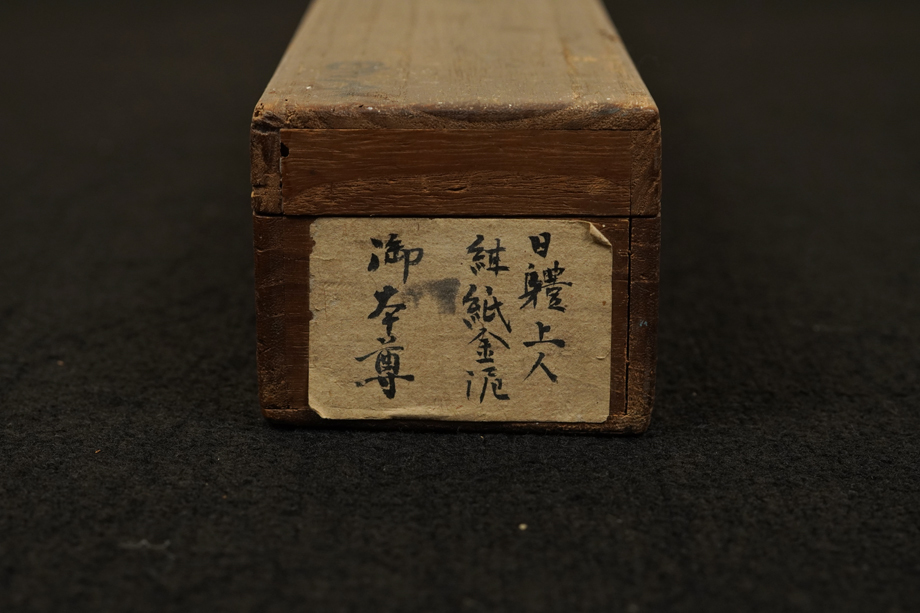 日軆上人
紺紙金泥
御本尊